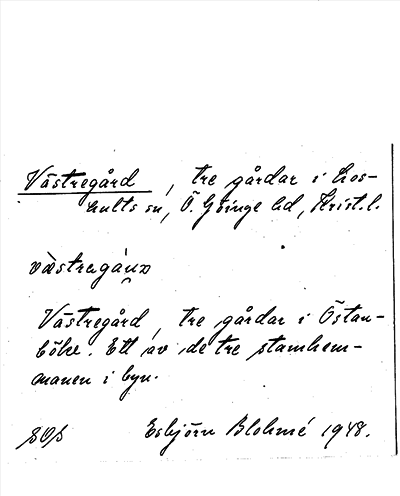 Västregård, tre gårdar i Los-
hults sn, Ö. Göinge hd, Krist. l.
Västregård, tre gårdar i Östan-
böke. Ett av de tre stamhem-
manen i byn.
Esbjörn Blohmé 1948.